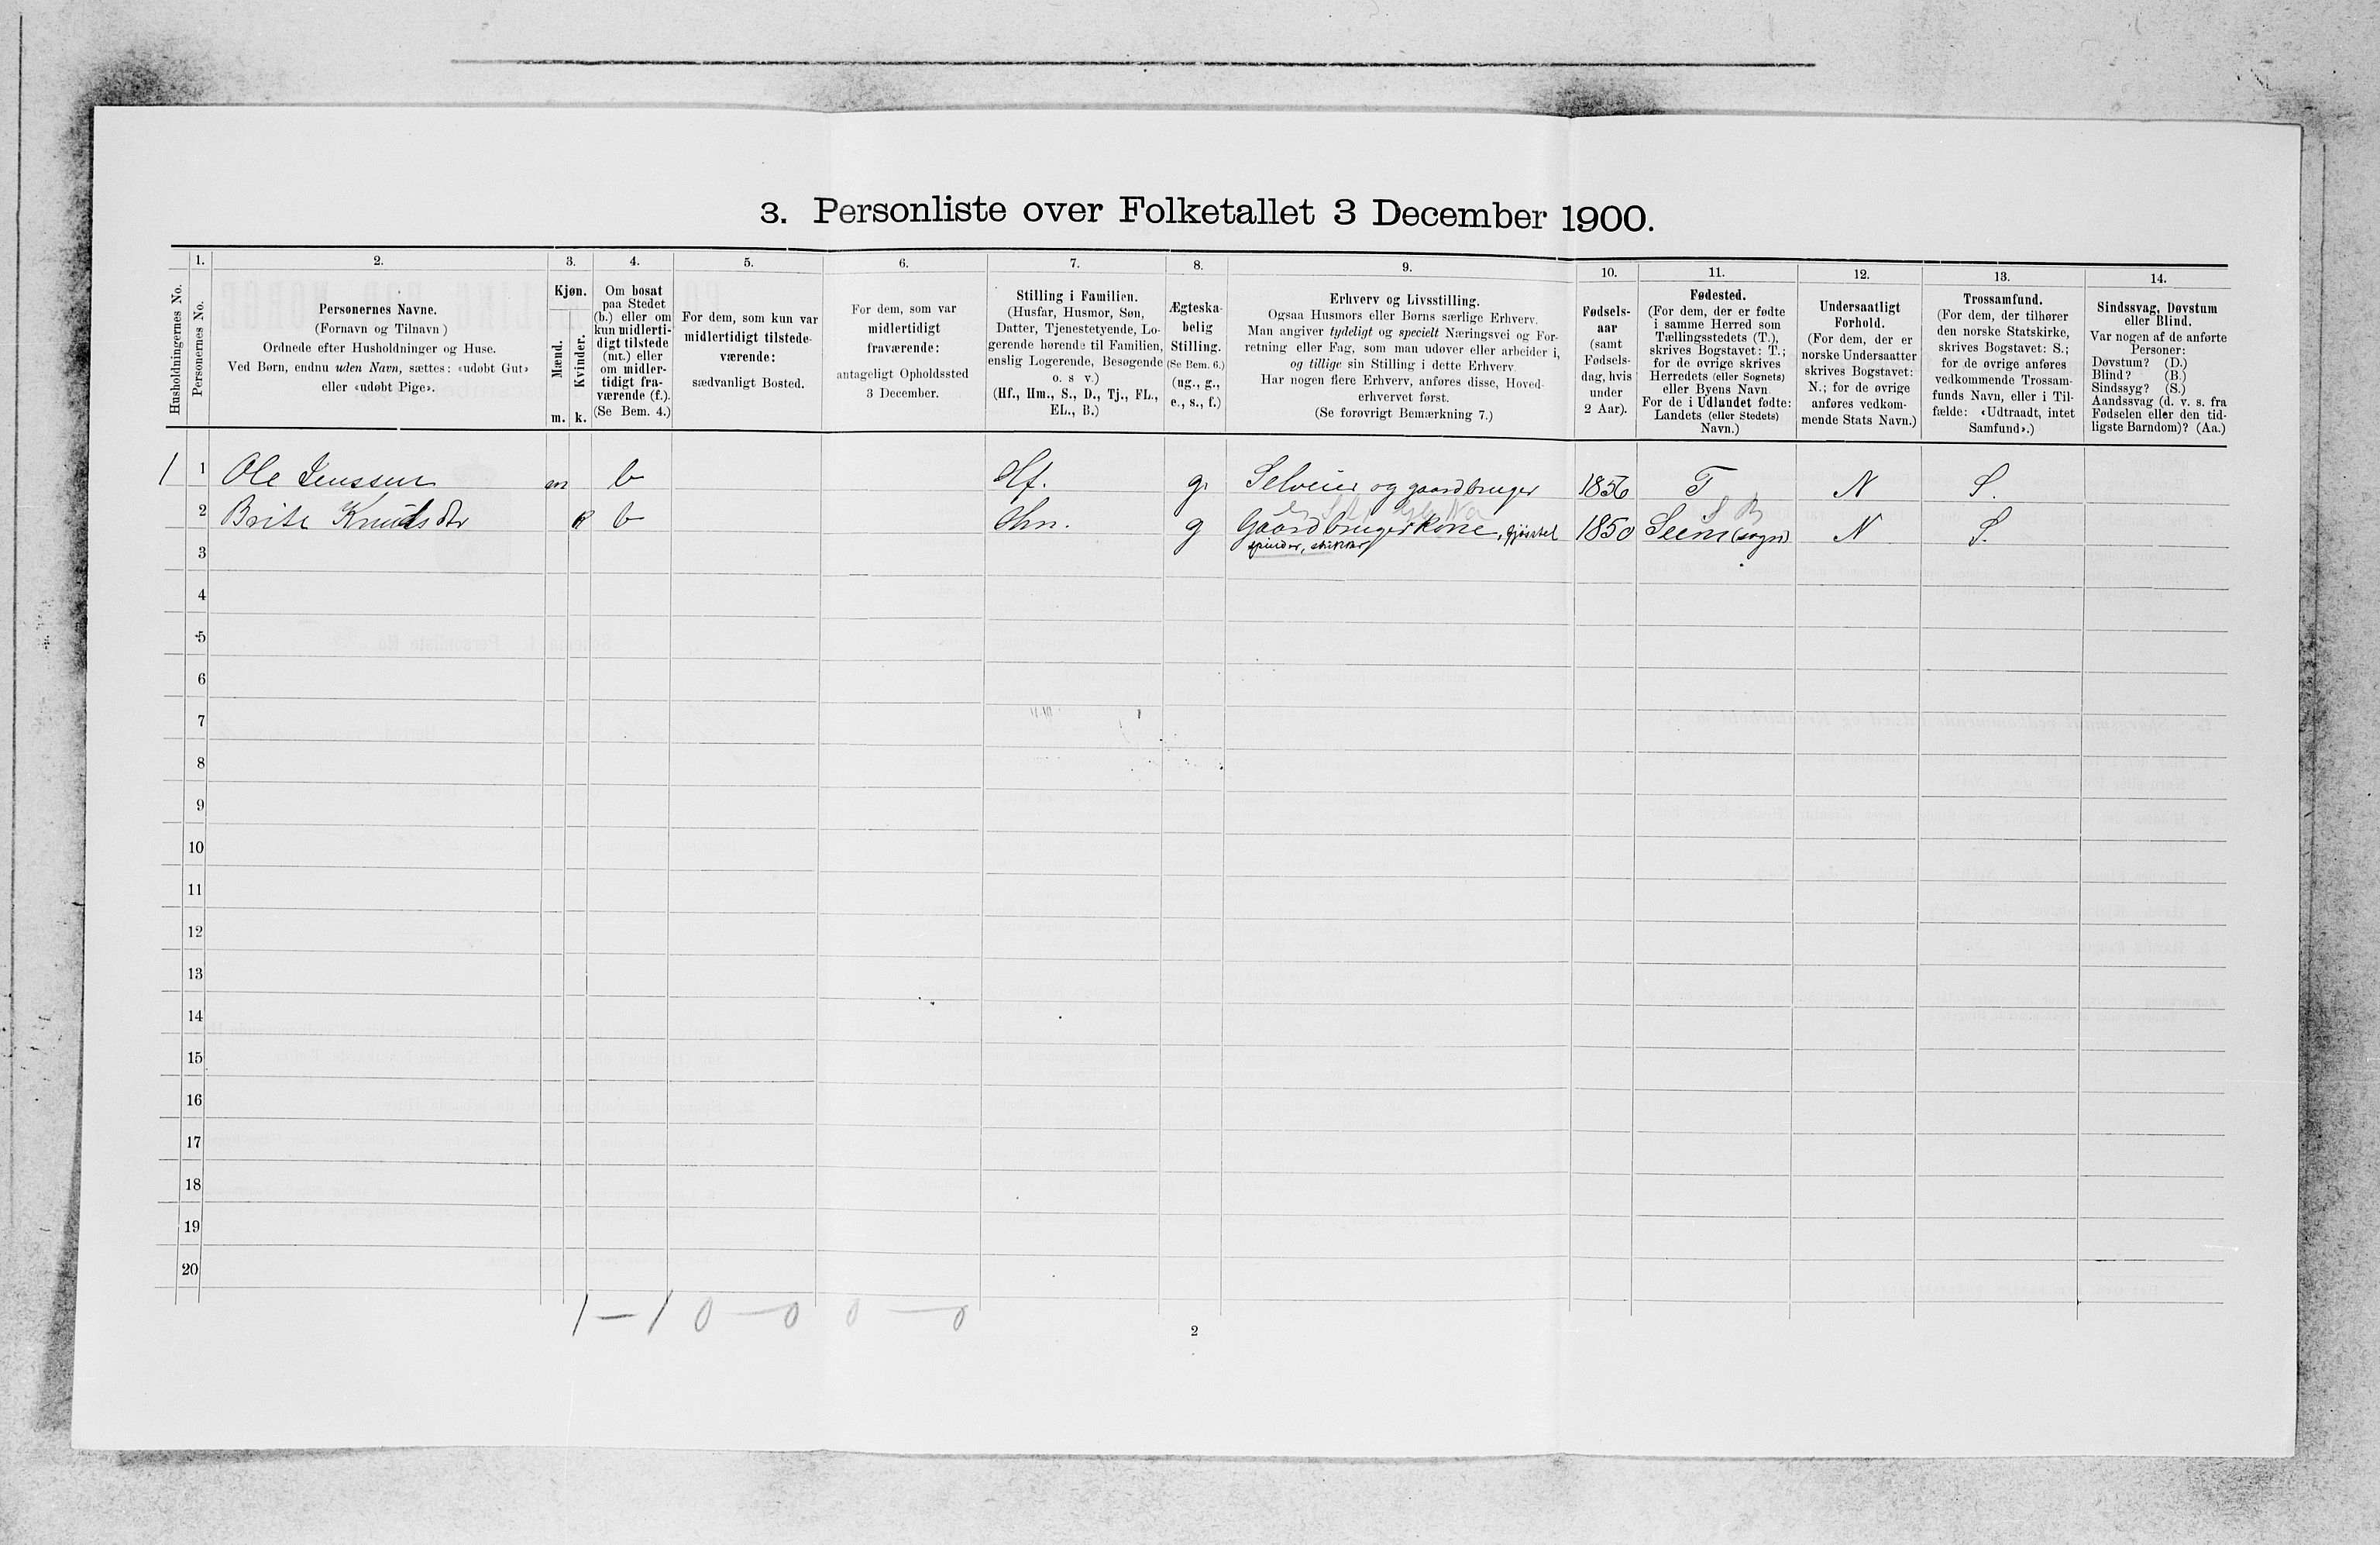 3. Personliste over Folketallet 3 December 1900.
1. 2. 3. 4. 5. 6. 7. 8. 9. 10. 11. 12. 13. 14.
Husholdningernes No.
Personernes No.
Personernes Navne.
(Fornavn og Tilnavn)
Ordnede efter Husholdninger og Huse.
Ved Børn, endnu uden Navn, sættes: «udøbt Gut»
eller «udøbt Pige».
Kjøn.
Mænd.
Kvinder.
m. k.
Om bosat
paa Stedet
(b.) eller om
kun midlerti-
digt tilstede
(mt.) eller
om midler-
tidigt fra-
værende (f.).
(Se Bem. 4.)
For dem, som kun var
midlertidigt tilstede-
værende:
sædvanligt Bosted.
For dem, som var
midlertidigt
fraværende:
antageligt Opholdssted
3 December.
Stilling i Familien.
(Husfar, Husmor, Søn,
Datter, Tjenestetyende, Lo-
gerende hørende til Familien,
enslig Logerende, Besøgende
o. s v.)
(Hf., Hm., S., D., Tj., FL.,
EL., B.)
Ægteska-
belig
Stilling.
(Se Bem. 6.)
(ug., g.,
e., s., f.)
Erhverv og Livsstilling.
Ogsaa Husmors eller Børns særlige Erhverv.
Man angiver tydeligt og specielt Næringsvei og For-
retning eller Fag, som man udøver eller arbeider i,
og tillige sin Stilling i dette Erhverv.
Har nogen flere Erhverv, anføres disse, Hoved-
erhvervet først.
(Se forøvrigt Bemærkning 7.)
Fødsels-
aar
(samt
Fødsels-
dag, hvis
under
2 Aar).
Fødested.
(For dem, der er fødte
i samme Herred som
Tællingsstedets (T.),
skrives Bogstavet: T.;
for de øvrige skrives
Herredets (eller Sognets)
eller Byens Navn
For de i Udlandet fødte:
Landets (eller Stedets)
Navn.)
Undersaatligt
Forhold.
(For dem, der er
norske Undersaatter
skrives Bogstavet:
N.; for de øvrige
anføres vedkom-
mende Stats Navn.)
Trossamfund.
(For dem, der tilhører
den norske Statskirke,
skrives Bogstavet: S.;
for de øvrige anføres
vedkommende Trossam-
funds Navn, eller i Til-
fælde: «Udtraadt, intet
Samfund».)
Sindssvag, Døvstum
eller Blind.
Var nogen af de anførte
Personer:
Døvstum? (D.)
Blind? (B.)
Sindssyg? (S.)
Aandssvag (d. v. s. fra
Fødselen eller den tid-
ligste Barndom)? (Aa.)
1 1 Ole Jenssen m b Hf. g. Selveier og gaardbruger 1856 T N S.
2 Brite Knudsdtr k b Hm. g Gaardbrugerkone, 1850 Seim (sogn) N S.
spinder, strikker
3
4
5
6
7
8
9
10
11
12
13
14
15
16
17
18
19
20
1 – 1 0 – 0 0 – 0
2